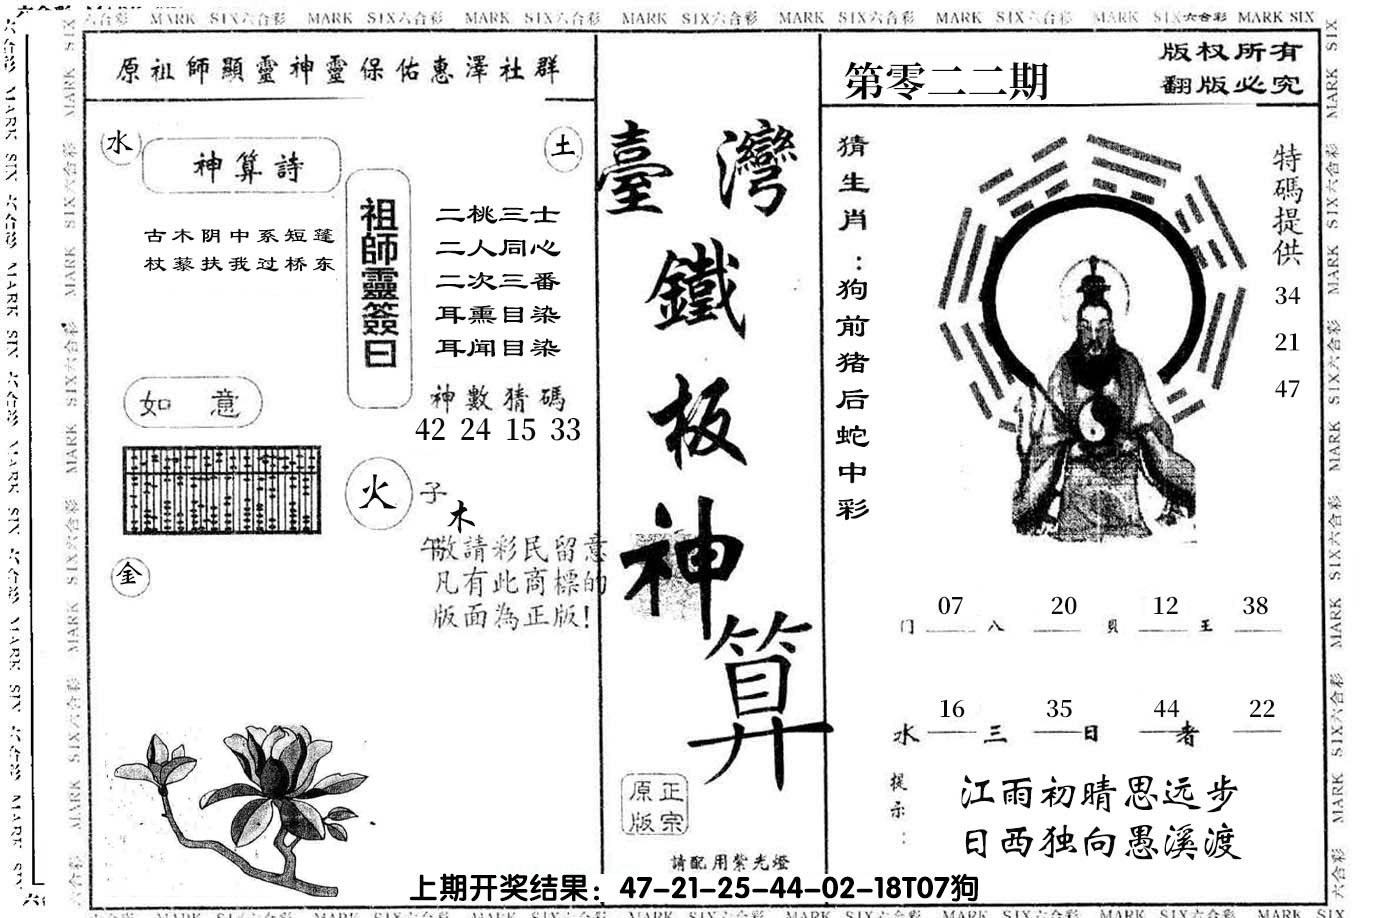 MARK SIX六合彩 MARK SIX六合彩 MARK SIX六合彩 MARK SIX六合彩 MARK SIX六合彩 MARK SIX六合彩 MARK SIX六合彩 MARK SIX
原祖師顯靈神靈保佑惠澤社群
水
神算詩
土
古木阴中系短蓬
杖藜扶我过桥东
祖師靈簽曰
二桃三士
二人同心
二次三番
耳熏目染
耳闻目染
神數猜碼
42 24 15 33
如 意
火
子
木
午
金
敬請彩民留意
凡有此商標的
版面為正版!
臺灣
鐵
板
神
算
正宗
原版
請配用紫光燈
第零二二期
版权所有
翻版必究
猜生肖:狗前猪后蛇中彩
特碼提供
34
21
47
07 20 12 38
门 八 貝 王
16 35 44 22
水 三 日 者
提示:
江雨初晴思远步
日西独向愚溪渡
上期开奖结果：47-21-25-44-02-18T07狗